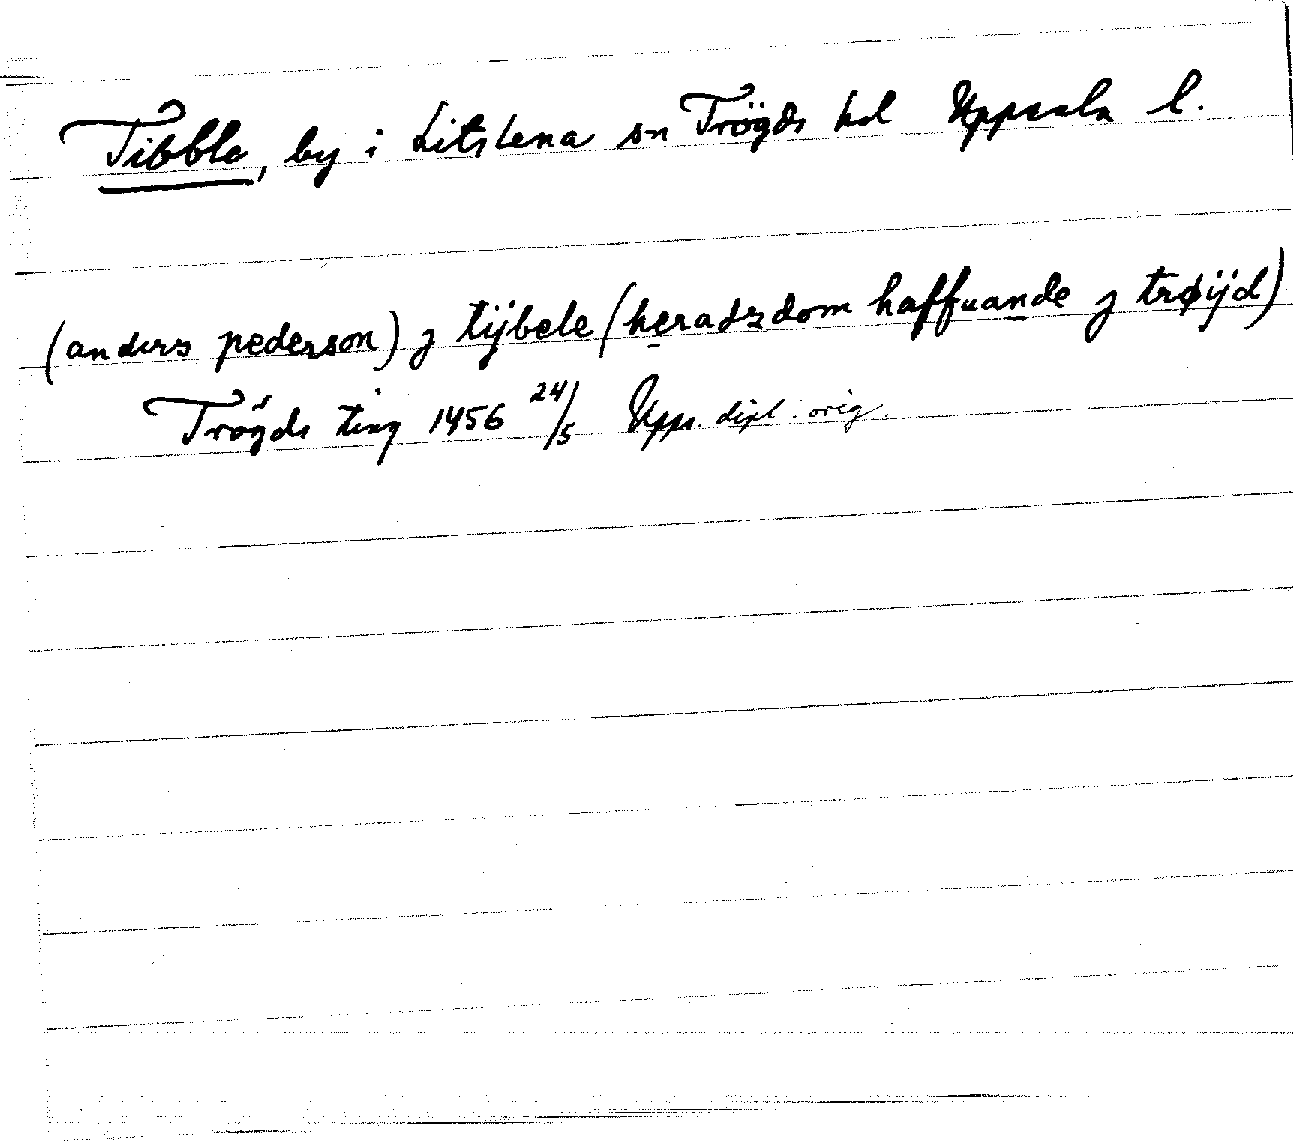 Tibble, by i Litslena sn Trögds hd Uppsala l.
(anders pederson) j tijbele (heradzdom haffuande j trøijd)
Trögds ting 1456 24/5 Upps. dipl. orig.